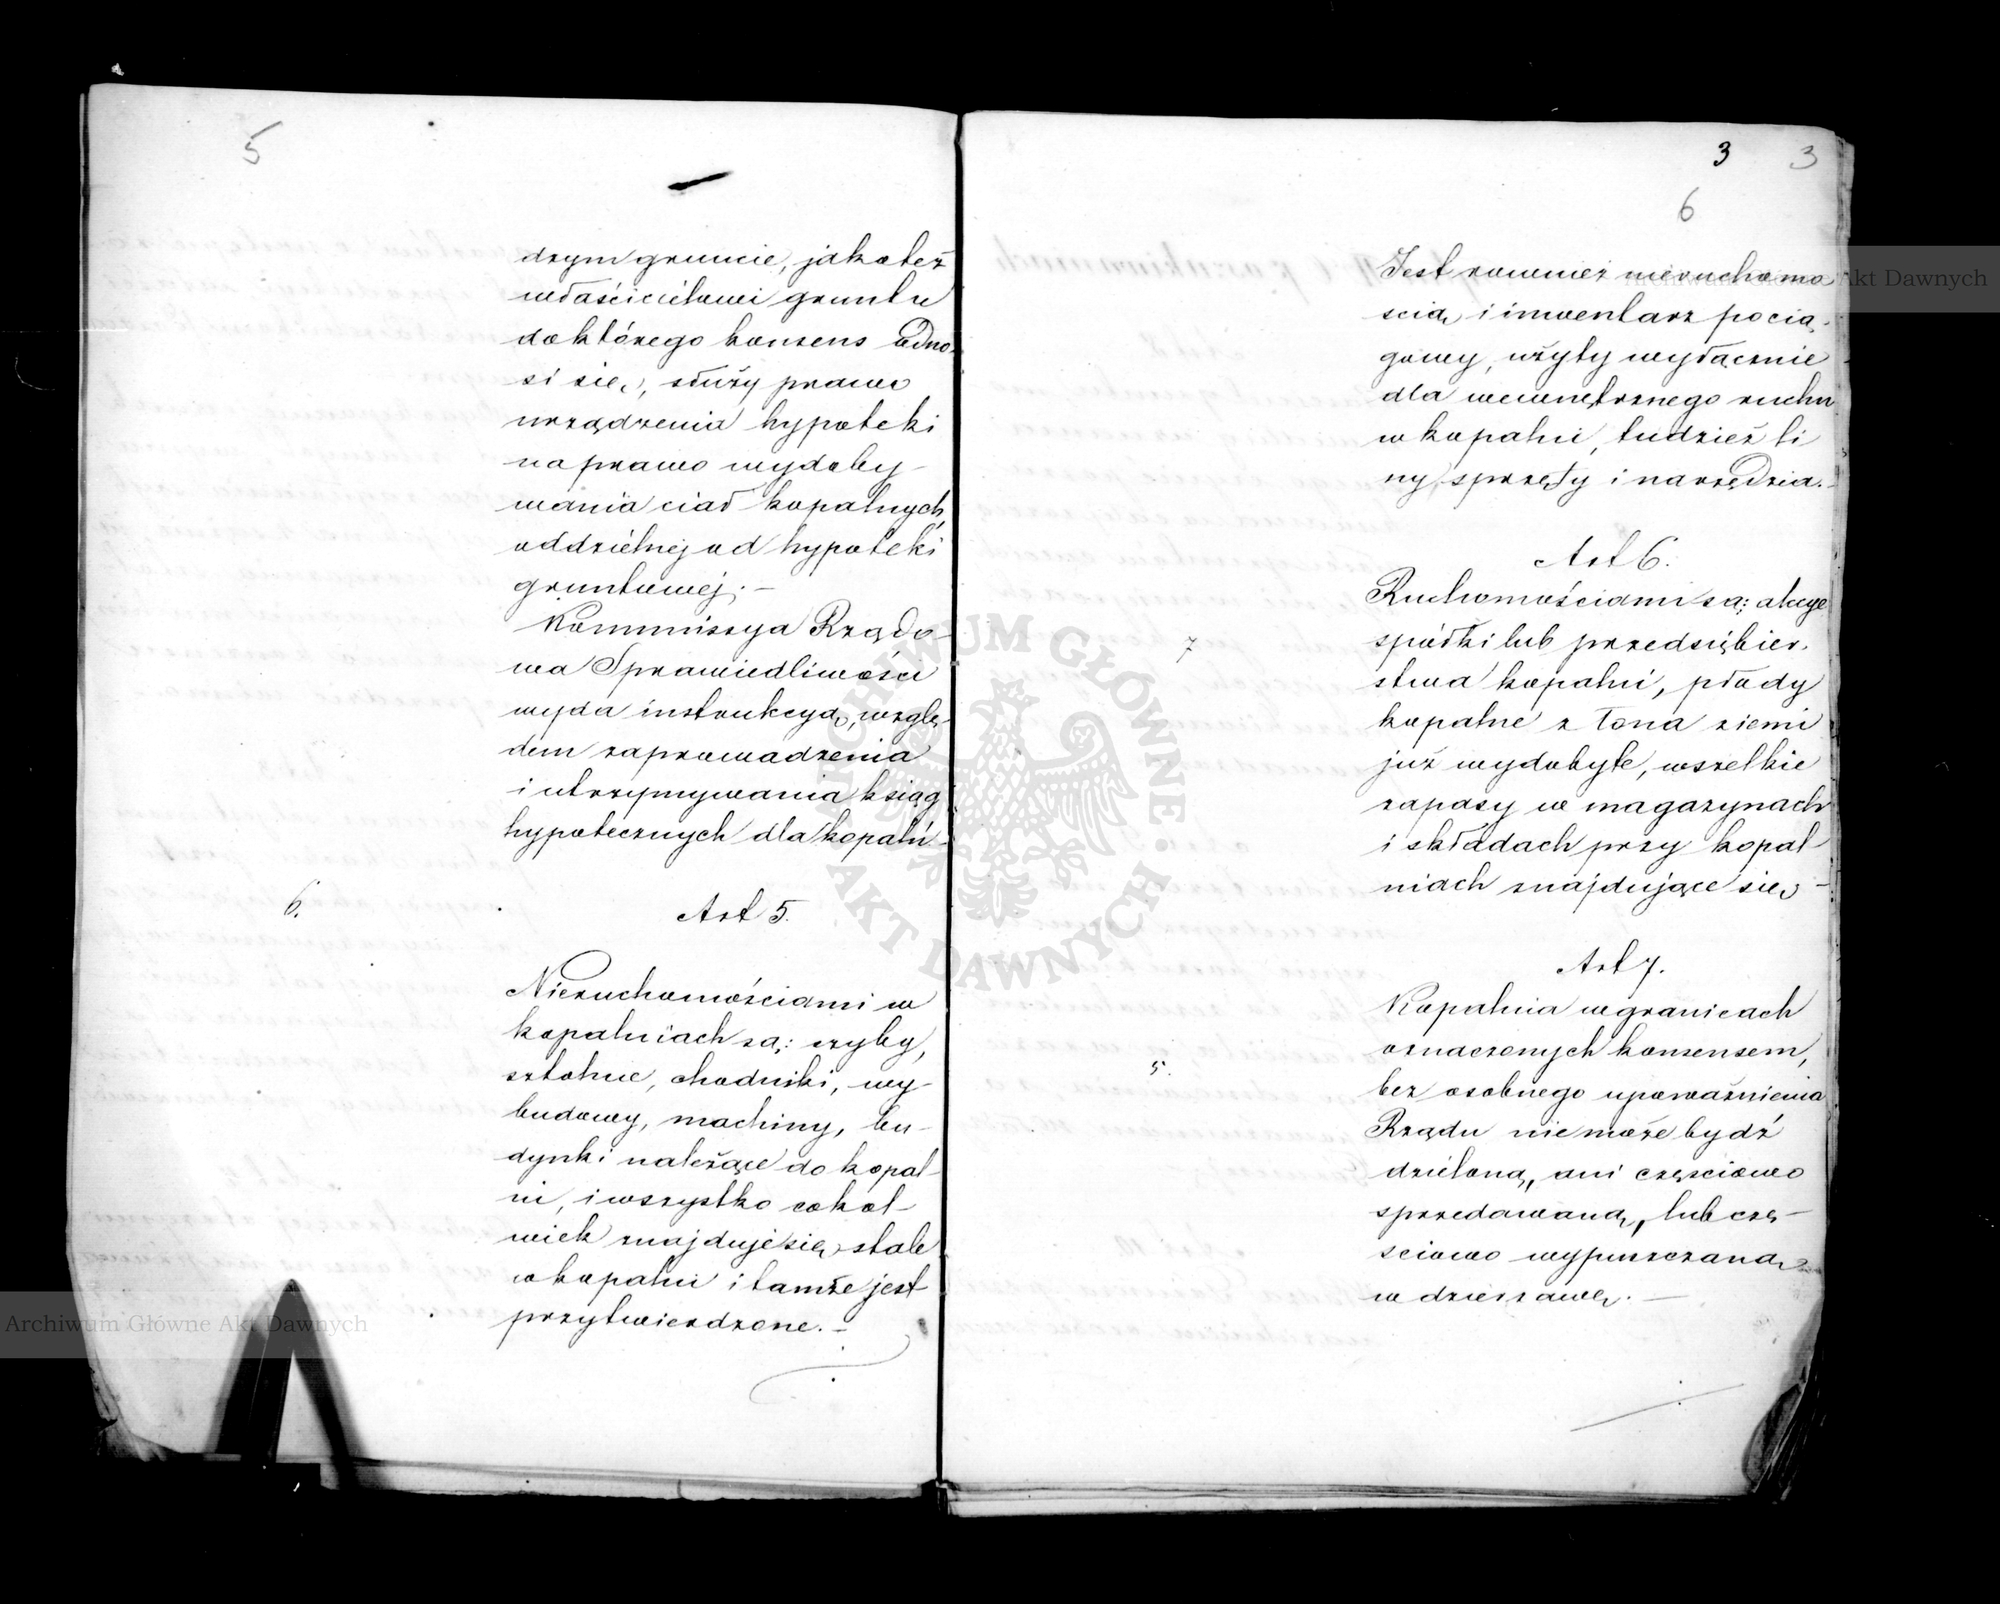 5
dzym gruncie, jakoteż
właścicielowi gruntu
do którego konsens odno-
si się, służy prawo
urządzenia hypoteki
na prawo wydoby-
wania ciał kopalnych
oddzielnej od hypoteki
gruntowej. —
Kommissya Rządo-
wa Sprawiedliwości
wyda instrukcyą, wzglę-
dem zaprowadzenia
i utrzymywania ksiąg
hypotecznych dla kopalń.
6.
Art 5.
Nieruchomościami w
kopalniach są: szyby,
sztolnie, chodniki, wy-
budowy, machiny, bu-
dynki należące do kopal-
ni, i wszystko cokol-
wiek znajduje się stale
w kopalni i tamże jest
przytwierdzone. —
3 3
6
Jest również nieruchomo
scią i inwentarz pocią-
gowy, użyty wyłącznie
dla wewnętrznego ruchu
w kopalni, tudzież li
ny, sprzęty i narzędzia. —
Art 6.
7
Ruchomościami są: akcye
spółki lub przedsiębier-
stwa kopalni, płody
kopalne z łona ziemi
już wydobyte, wszelkie
zapasy w magazynach
i składach przy kopal
niach znajdujące się —
Art 7.
Kopalnia w granicach
oznaczonych konsensem,
5.
bez osobnego upoważnienia
Rządu nie może bydź
dzieloną, ani częściowo
sprzedawaną, lub czę-
ściowo wypuszczaną
w dzierżawę. —
ARCHIWUM GŁÓWNE AKT DAWNYCH
Archiwum Główne Akt Dawnych
Archiwum Główne Akt Dawnych